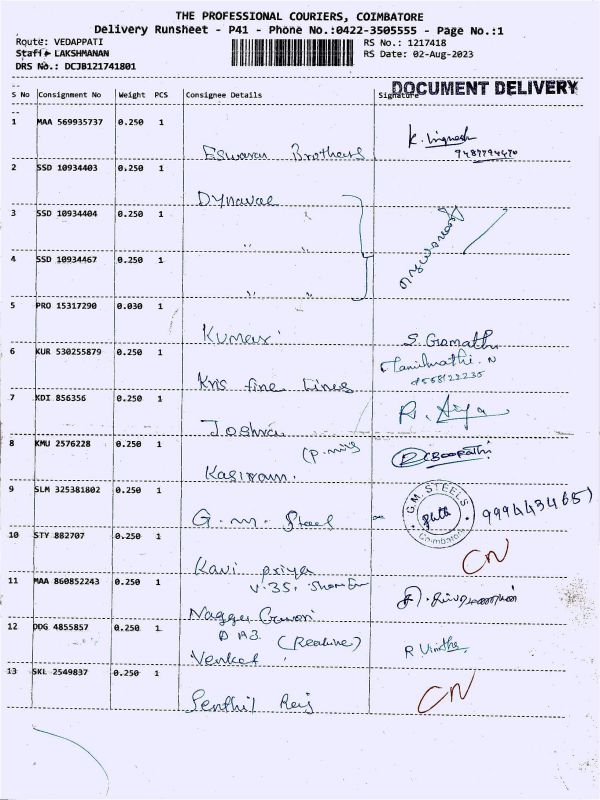 THE PROFESSIONAL COURIERS, COIMBATORE
Delivery Runsheet - P41 - Phone No.:0422-3505555 - Page No.:1
Route: VEDAPPATI
RS No.: 1217418
Staff: LAKSHMANAN
RS Date: 02-Aug-2023
DRS No.: DCJB121741801
DOCUMENT DELIVERY
S No Consignment No Weight PCS Consignee Details Signature
1 MAA 569935737 0.250 1
Eswaran Brothers
K. Vignesh
2 SSD 10934403 0.250 1
Dynavac
3 SSD 10934404 0.250 1
" "
4 SSD 10934467 0.250 1
" "
5 PRO 15317290 0.030 1
Kumar
S. Gomathi
6 KUR 530255879 0.250 1
Tamilmathi. N
Kris fine Lines
7 KDI 856356 0.250 1
Joshva
8 KMU 2576228 0.250 1
Kasiram.
9 SLM 325381802 0.250 1
G.M. Steel
G.M. STEELS
Coimbatore
10 STY 882707 0.250 1
Kavi priya
CN
V.35.
11 MAA 860852243 0.250 1
12 DDG 4855857 0.250 1
Venket
13 SKL 2549837 0.250 1
Senthil Raj
CN